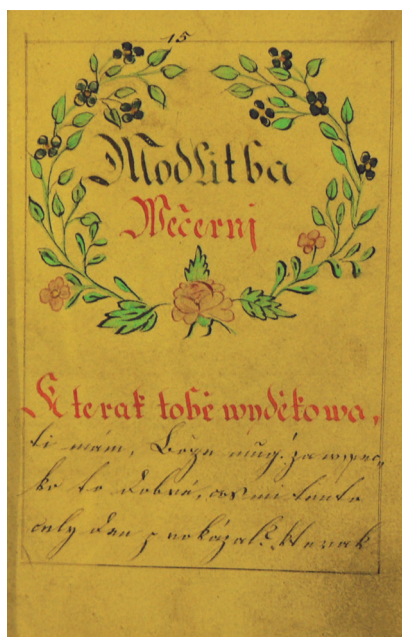 15
Modlitba
Wečernj
Kterak tobě wyděkowa,
ti mám, Bože můg, za wssec„
ko to dobré, cos mi tento
celý den prokázal? Kterak